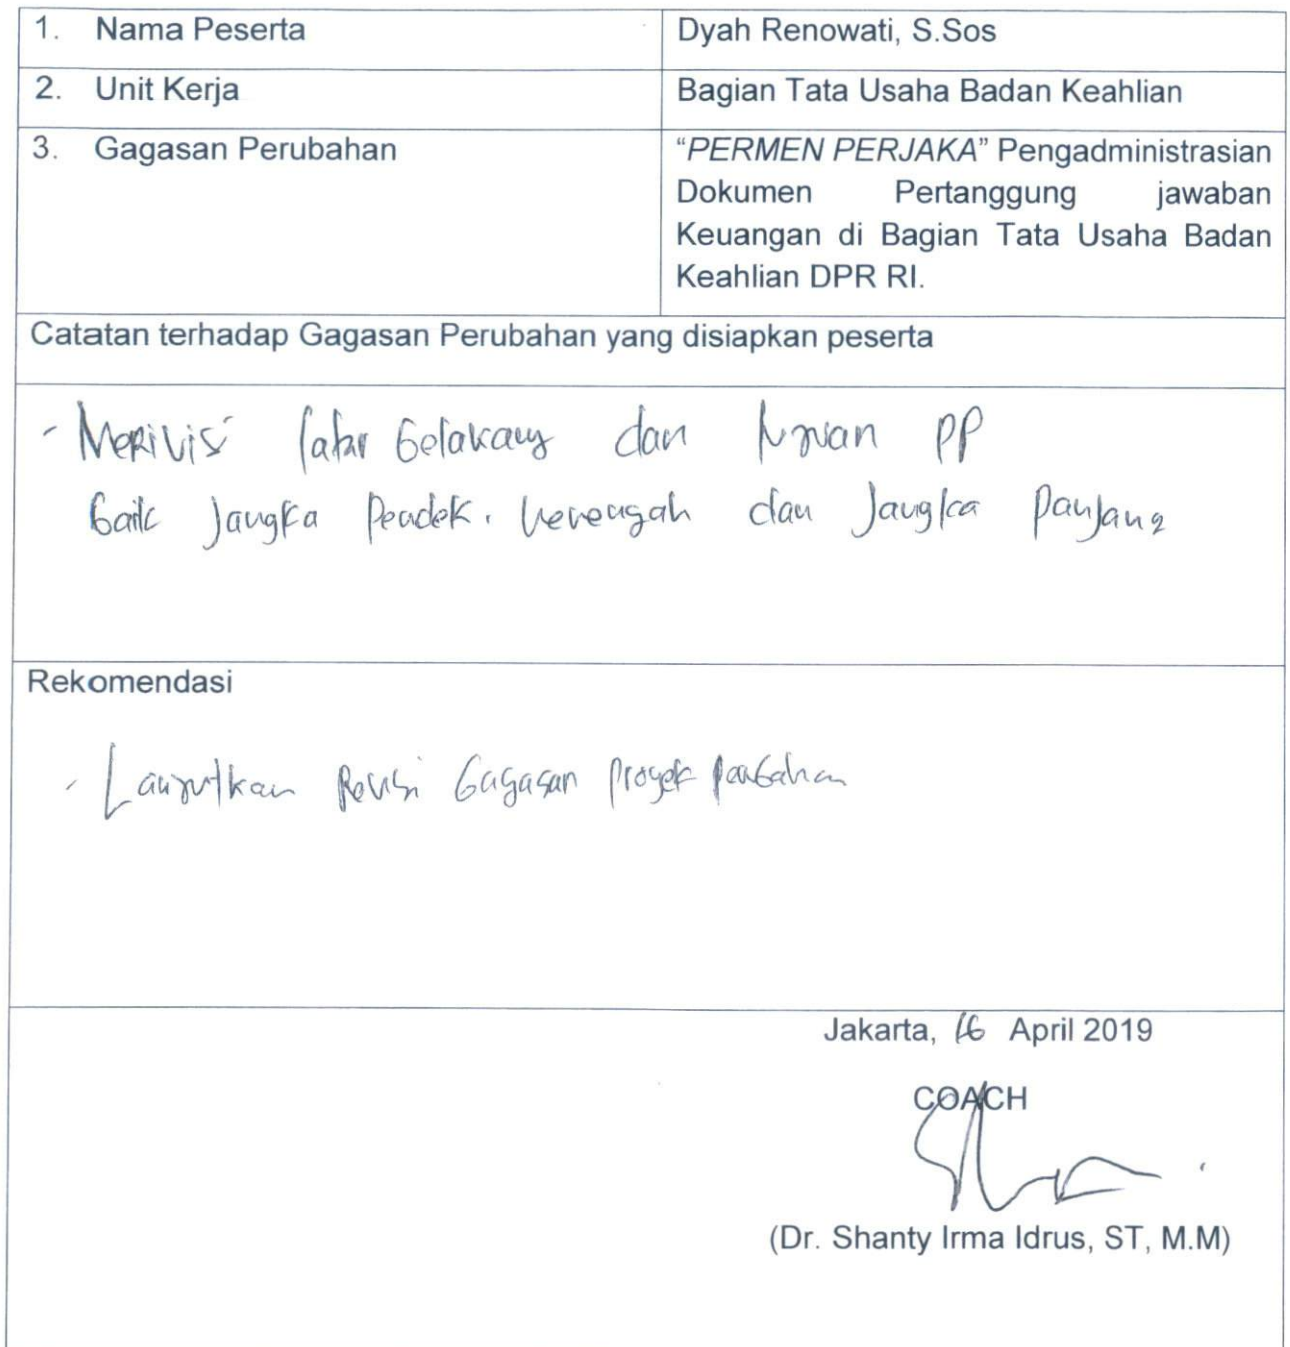 1. Nama Peserta Dyah Renowati, S.Sos
2. Unit Kerja Bagian Tata Usaha Badan Keahlian
3. Gagasan Perubahan "PERMEN PERJAKA" Pengadministrasian
Dokumen Pertanggung jawaban
Keuangan di Bagian Tata Usaha Badan
Keahlian DPR RI.
Catatan terhadap Gagasan Perubahan yang disiapkan peserta
- Merivisi latar belakang dan tujuan PP
baik Jangka Pendek, menengah dan Jangka Panjang
Rekomendasi
- Lanjutkan Revisi Gagasan proyek perubahan
Jakarta, 16 April 2019
COACH
(Dr. Shanty Irma Idrus, ST, M.M)